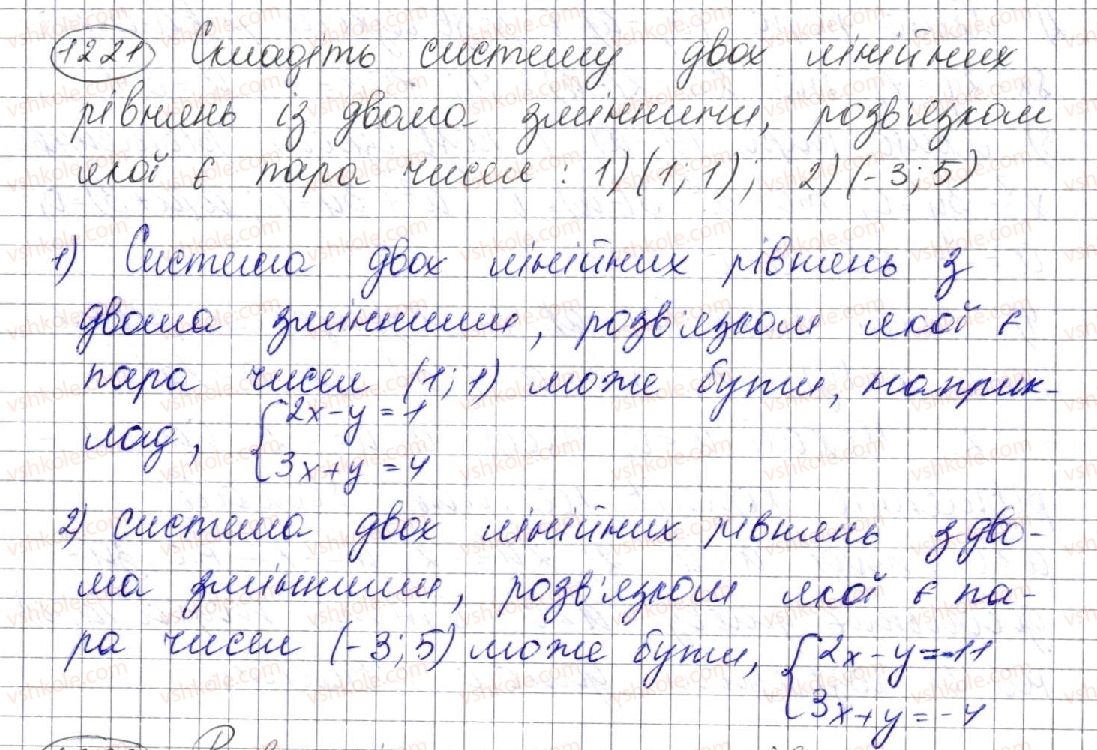 1221 Складіть систему двох лінійних
рівнянь із двома змінними, розв'язком
якої є пара чисел : 1) (1; 1) ; 2) (-3; 5)
1) Система двох лінійних рівнянь з
двома змінними, розв'язком якої є
пара чисел (1; 1) може бути, наприк-
лад, { 2x - y = 1
3x + y = 4
2) система двох лінійних рівнянь з дво-
ма змінними, розв'язком якої є па-
ра чисел (-3; 5) може бути, { 2x - y = -11
3x + y = -4